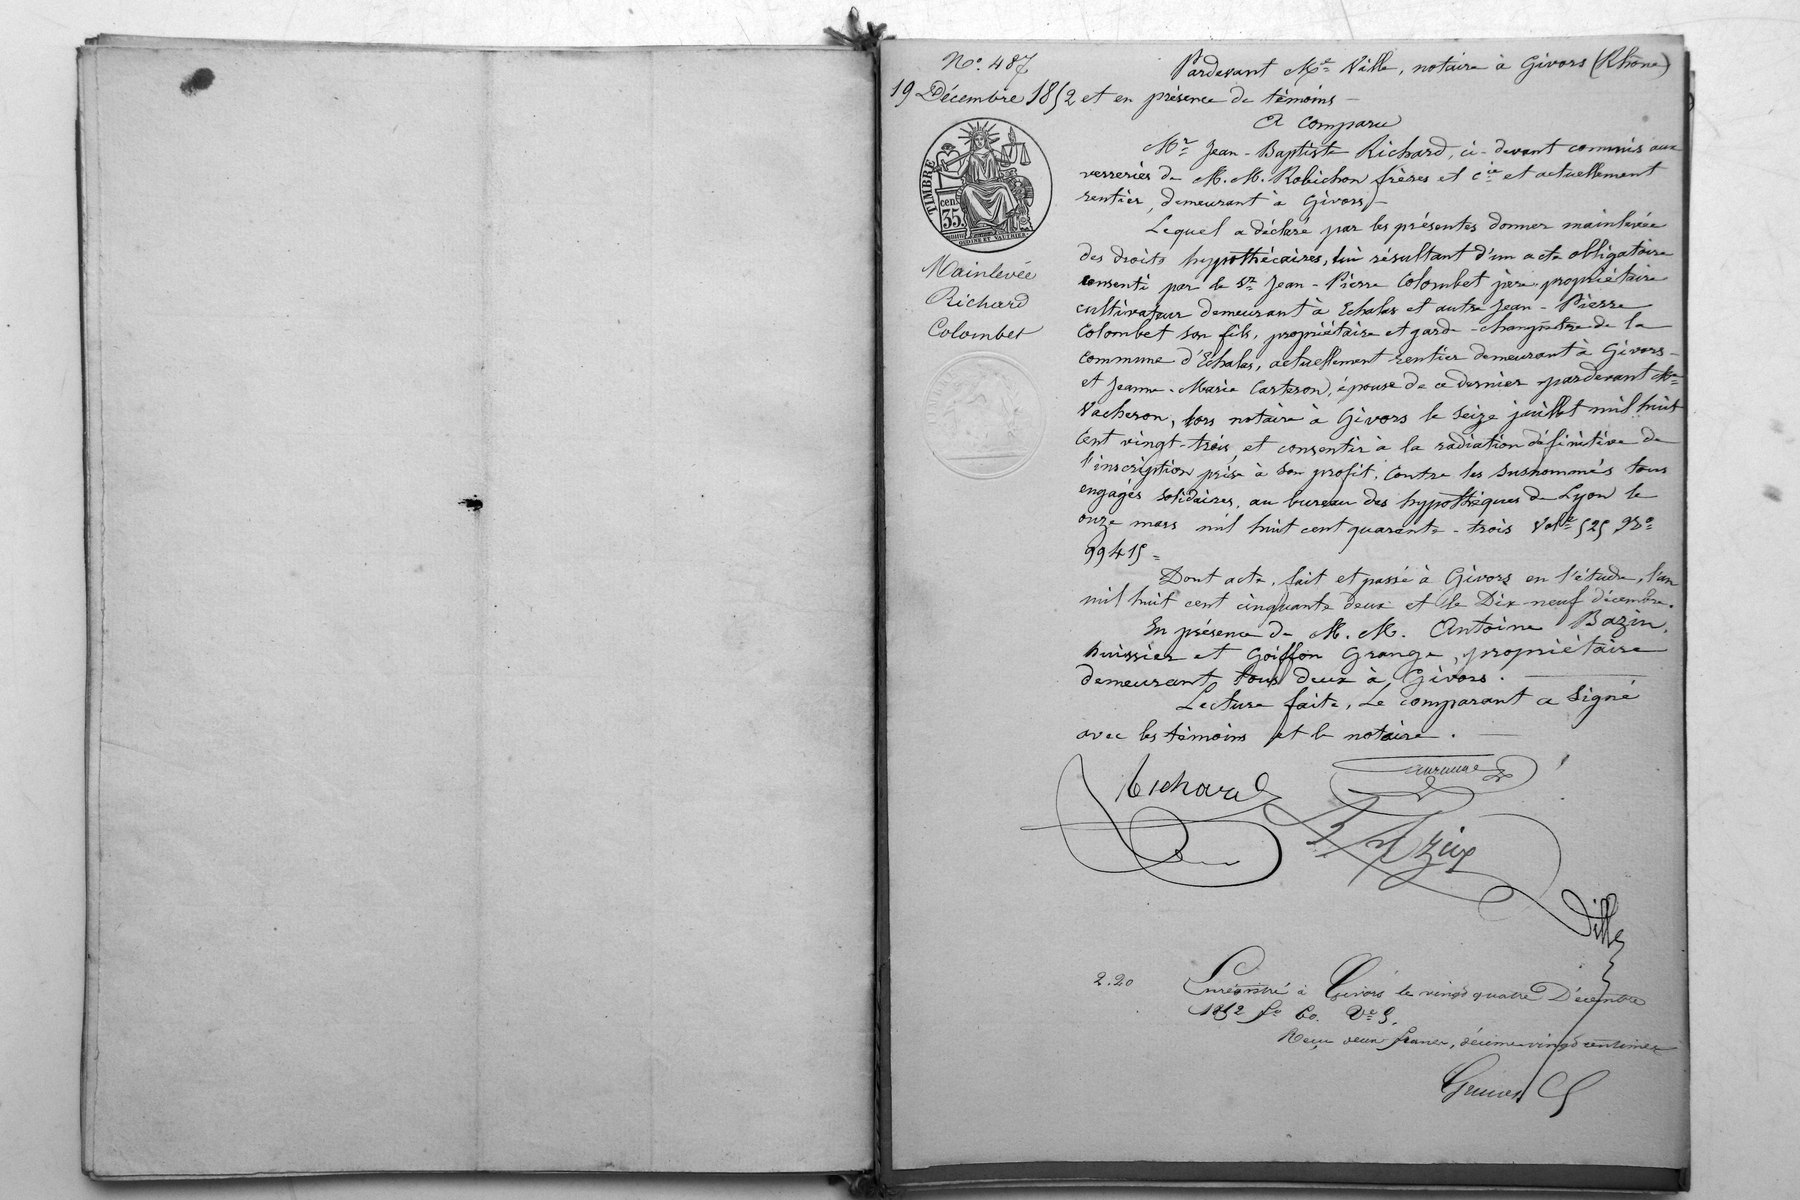 N.º 487
19 Décembre 1852
TIMBRE
cen.
35.
Mainlevée
Richard
Colombet
Pardevant Me Ville, notaire à Givors (Rhône)
et en présence de témoins —
A comparu
Mr Jean-Baptiste Richard, ci-devant commis aux
verreries de M.M. Robichon frères et Cie et actuellement
rentier, demeurant à Givors —
Lequel a déclaré par les présentes donner mainlevée
des droits hypothécaires, lui résultant d'un acte obligatoire
consenti par le Sr Jean-Pierre Colombet père, propriétaire
cultivateur demeurant à Echalas et autre Jean-Pierre
Colombet son fils, propriétaire et garde-champêtre de la
Commune d'Echalas, actuellement rentier demeurant à Givors —
et Jeanne-Marie Carteron, épouse de ce dernier pardevant Me
Vacheron, lors notaire à Givors le seize juillet mil huit
cent vingt-trois, et consentir à la radiation définitive de
l'inscription prise à son profit, contre les susnommés tous
engagés solidaires, au bureau des hypothèques de Lyon le
onze mars mil huit cent quarante-trois Vole 525 No
99415 =
Dont acte, fait et passé à Givors en l'étude, l'an
mil huit cent cinquante deux et le Dix neuf décembre.
En présence de M.M. Antoine Bazin,
huissier et Goiffon Grange, propriétaire
demeurant tous deux à Givors. —
Lecture faite, Le comparant a signé
avec les témoins et le notaire. —
Richard
Bazin
Ville
2.20
Enregistré à Givors le vingt quatre Décembre
1852 fo 60. Vo 9.
Reçu deux francs, décime vingt centimes